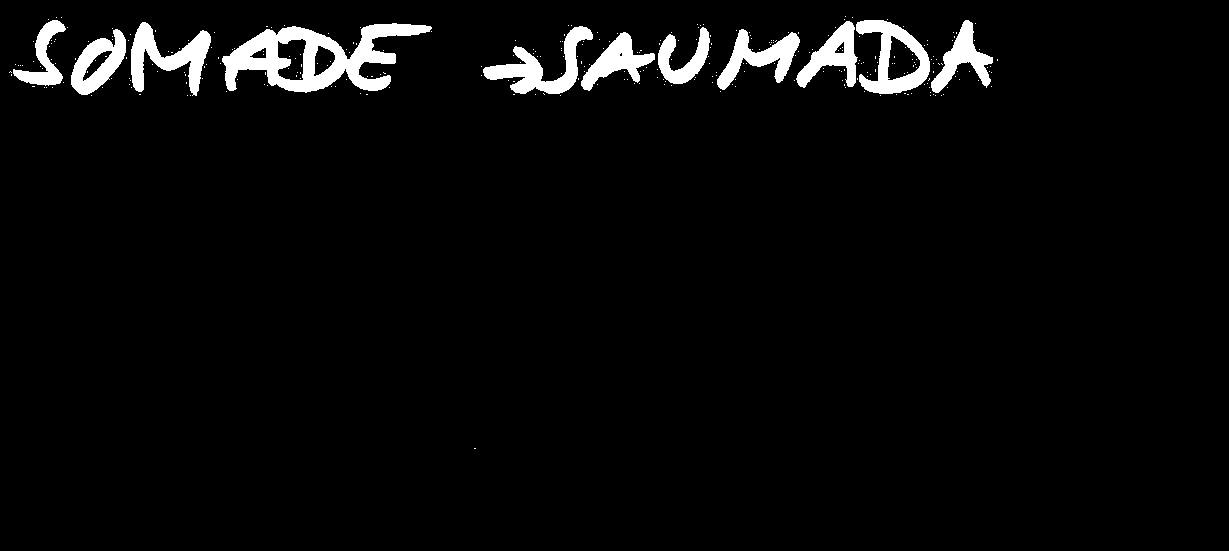 SOMADE → SAUMADA